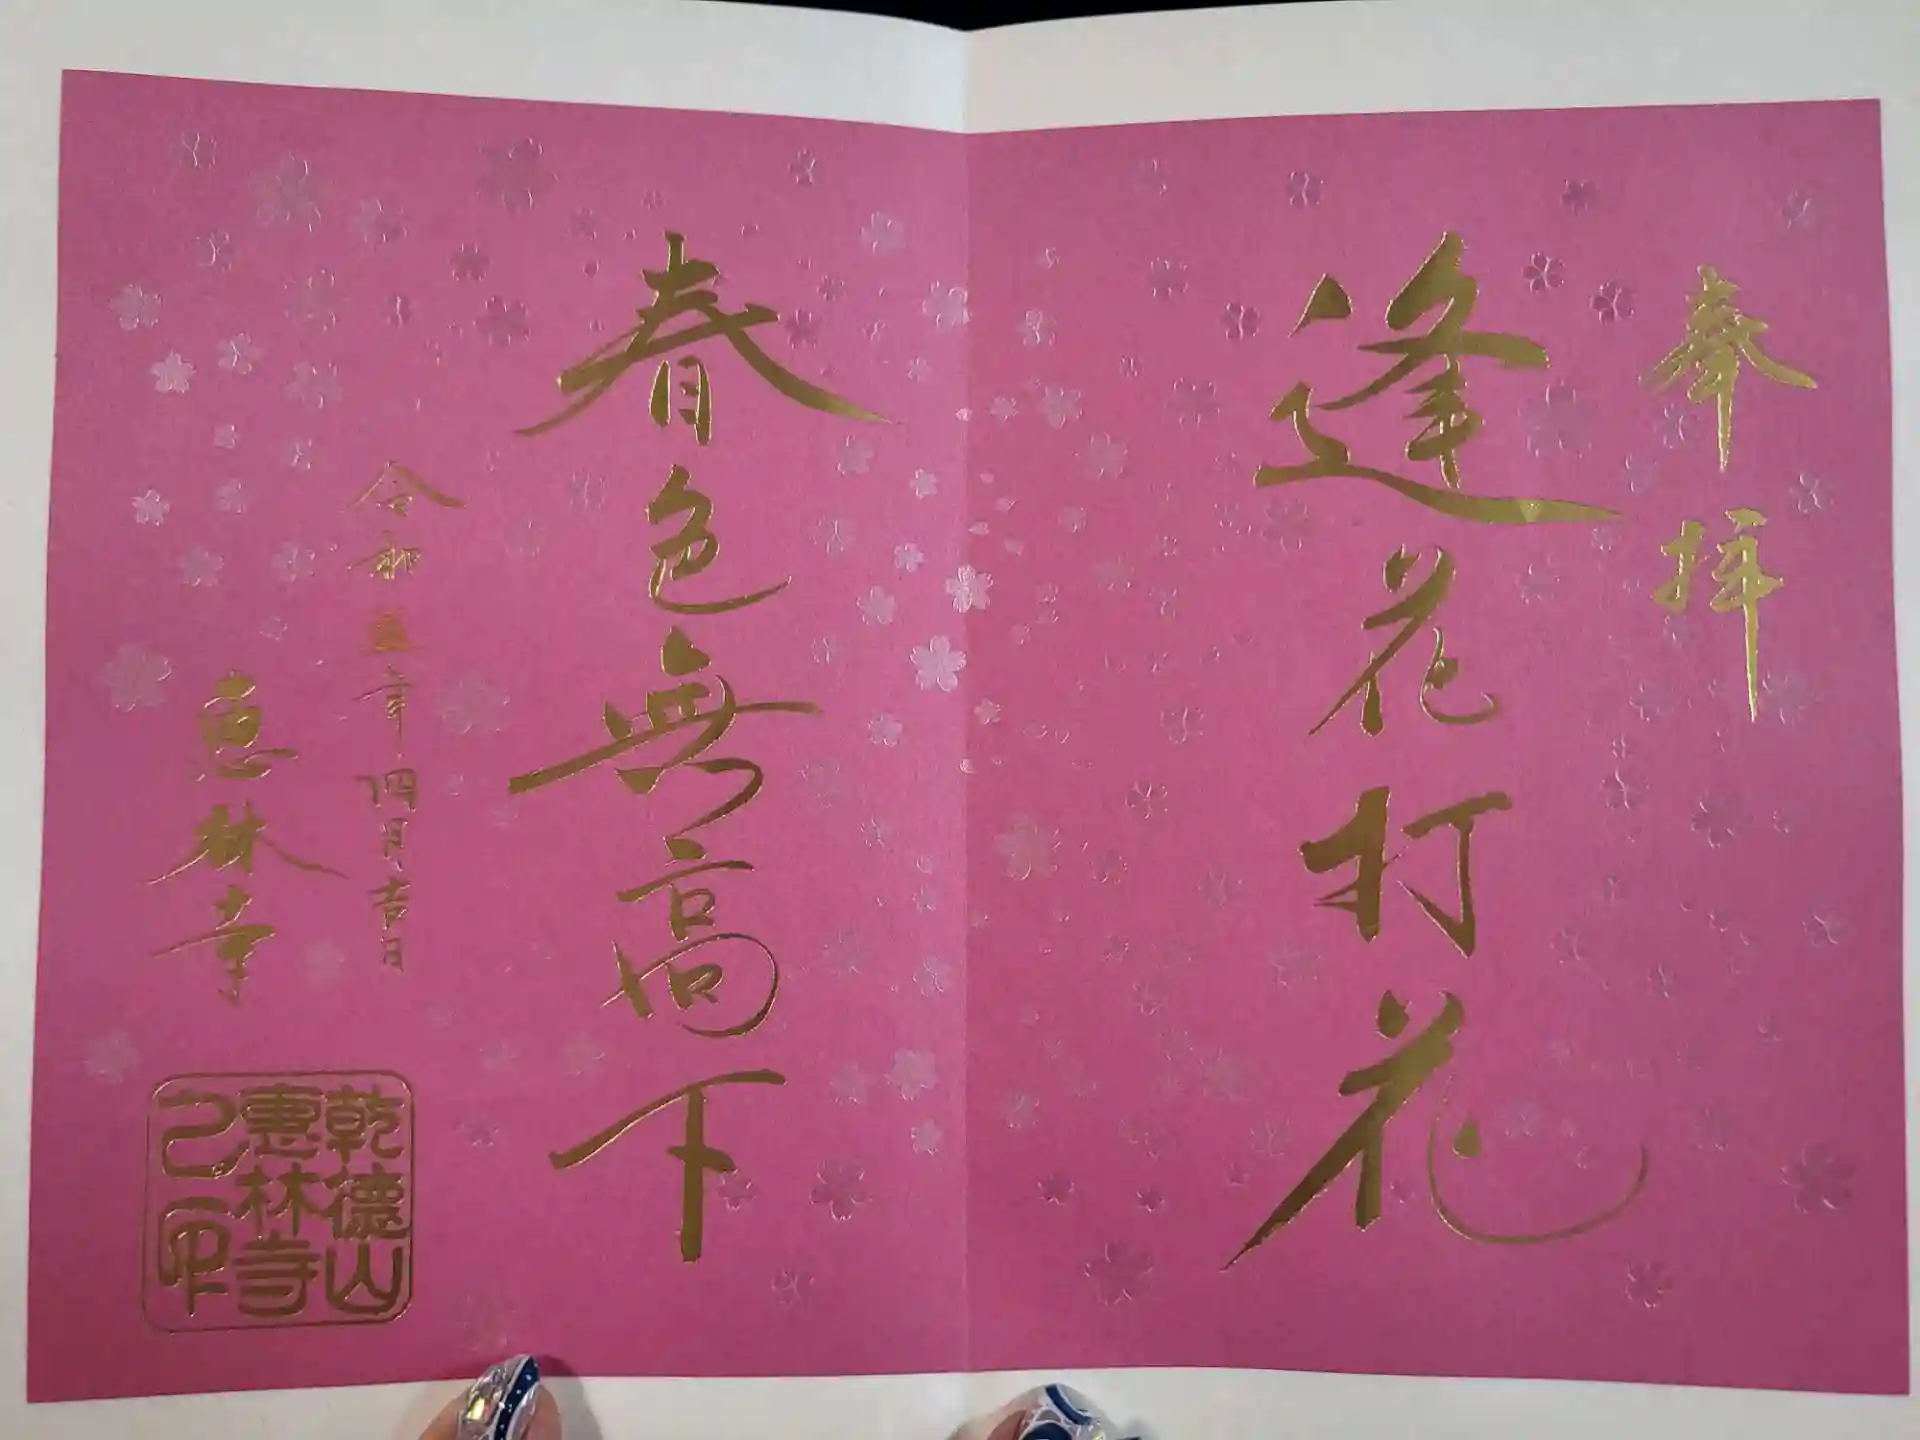 奉拝
逢花打花
春色無高下
令和五年四月吉日
恵林寺
乾徳山
惠林寺
之印